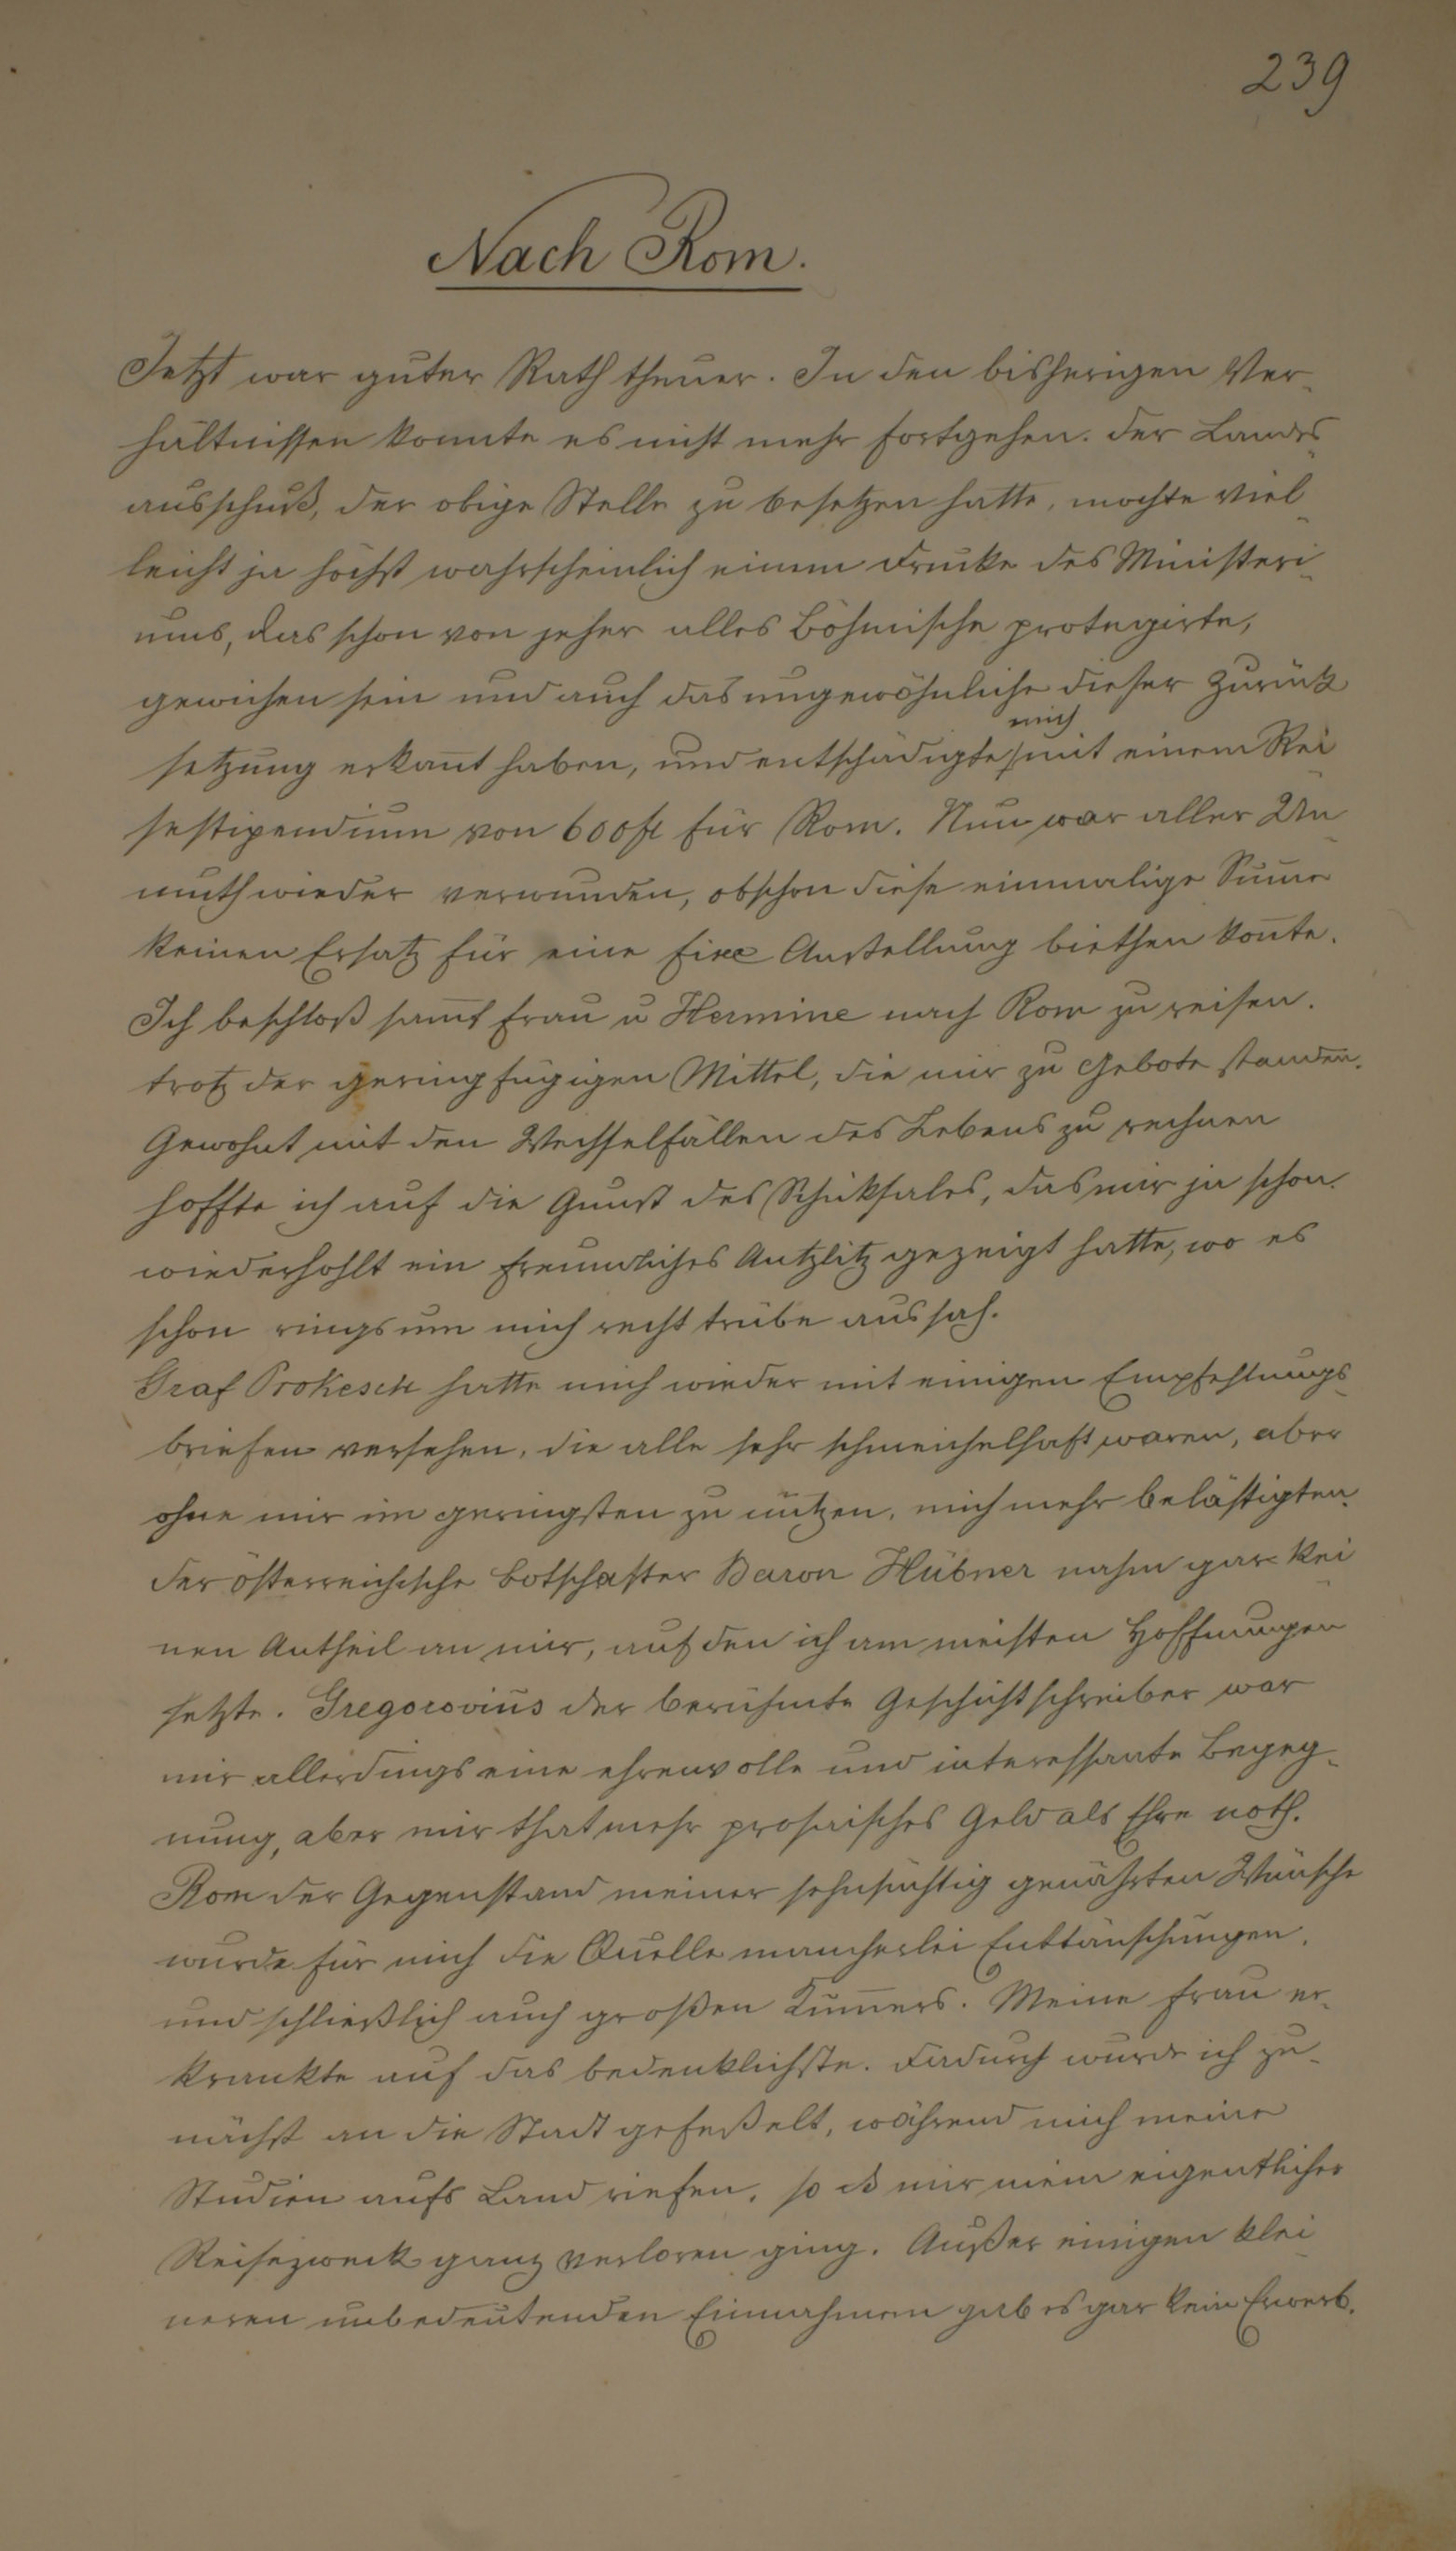 239
Nach Rom.
Jetzt war guter Rath theuer. In den bisherigen Ver-
hältnissen konnte es nicht mehr fortgehen. Der Landes-
ausschuß, der obige Stelle zu besetzen hatte, mochte viel-
leicht ja höchst wahrscheinlich einem Drucke des Ministeri-
ums, das schon von jeher alles Böhmische protegirte,
gewichen sein und auch das ungewöhnliche dieser Zurück
mich
setzung erkan̄t haben, und entschädigte mit einem Rei-
sestipendium von 600 fl für Rom. Nun war aller Un-
muth wieder verwunden, obschon diese einmalige Sum̄e
keinen Ersatz für eine fixe Anstellung biethen kon̄te.
Ich beschloß sam̄t Frau u Hermine nach Rom zu reisen.
trotz der geringfügigen Mittel, die mir zu Gebote standen.
Gewohnt mit den Wechselfällen des Lebens zu rechnen
hoffte ich auf die Gunst des Schiksales, das mir ja schon
wiederhohlt ein freundliches Antzlitz gezeigt hatte, wo es
schon rings um mich recht trübe aussah.
Graf Prokesch hatte mich wieder mit einigen Empfehlungs-
briefen versehen, die alle sehr schmeichelhaft waren, aber
ohne mir im geringsten zu nützen, mich mehr belästigten.
Der österreichische Botschafter Baron Hübner nahm gar kei-
nen Antheil an mir, auf den ich am meisten Hoffnungen
setzte. Gregorovius der berühmte Geschichtschreiber war
mir allerdings eine ehrenvolle und interessante Begeg-
nung, aber mir that mehr prosaisches Geld als Ehre noth.
Rom der Gegenstand meiner sehnsüchtig genährten Wünsche
wurde für mich die Quelle mancherlei Enttäuschungen.
und schließlich auch großen Kum̄ers. Meine Frau er-
krankte auf das bedenklichste. Dadurch wurde ich zu-
nächst an die Stadt gefeßelt, während mich meine
Studien aufs Land riefen, so dß mir mein eigentlicher
Reisezweck ganz verloren ging. Außer einigen klei-
neren unbedeutenden Einnahmen gab es gar kein Erwerb.